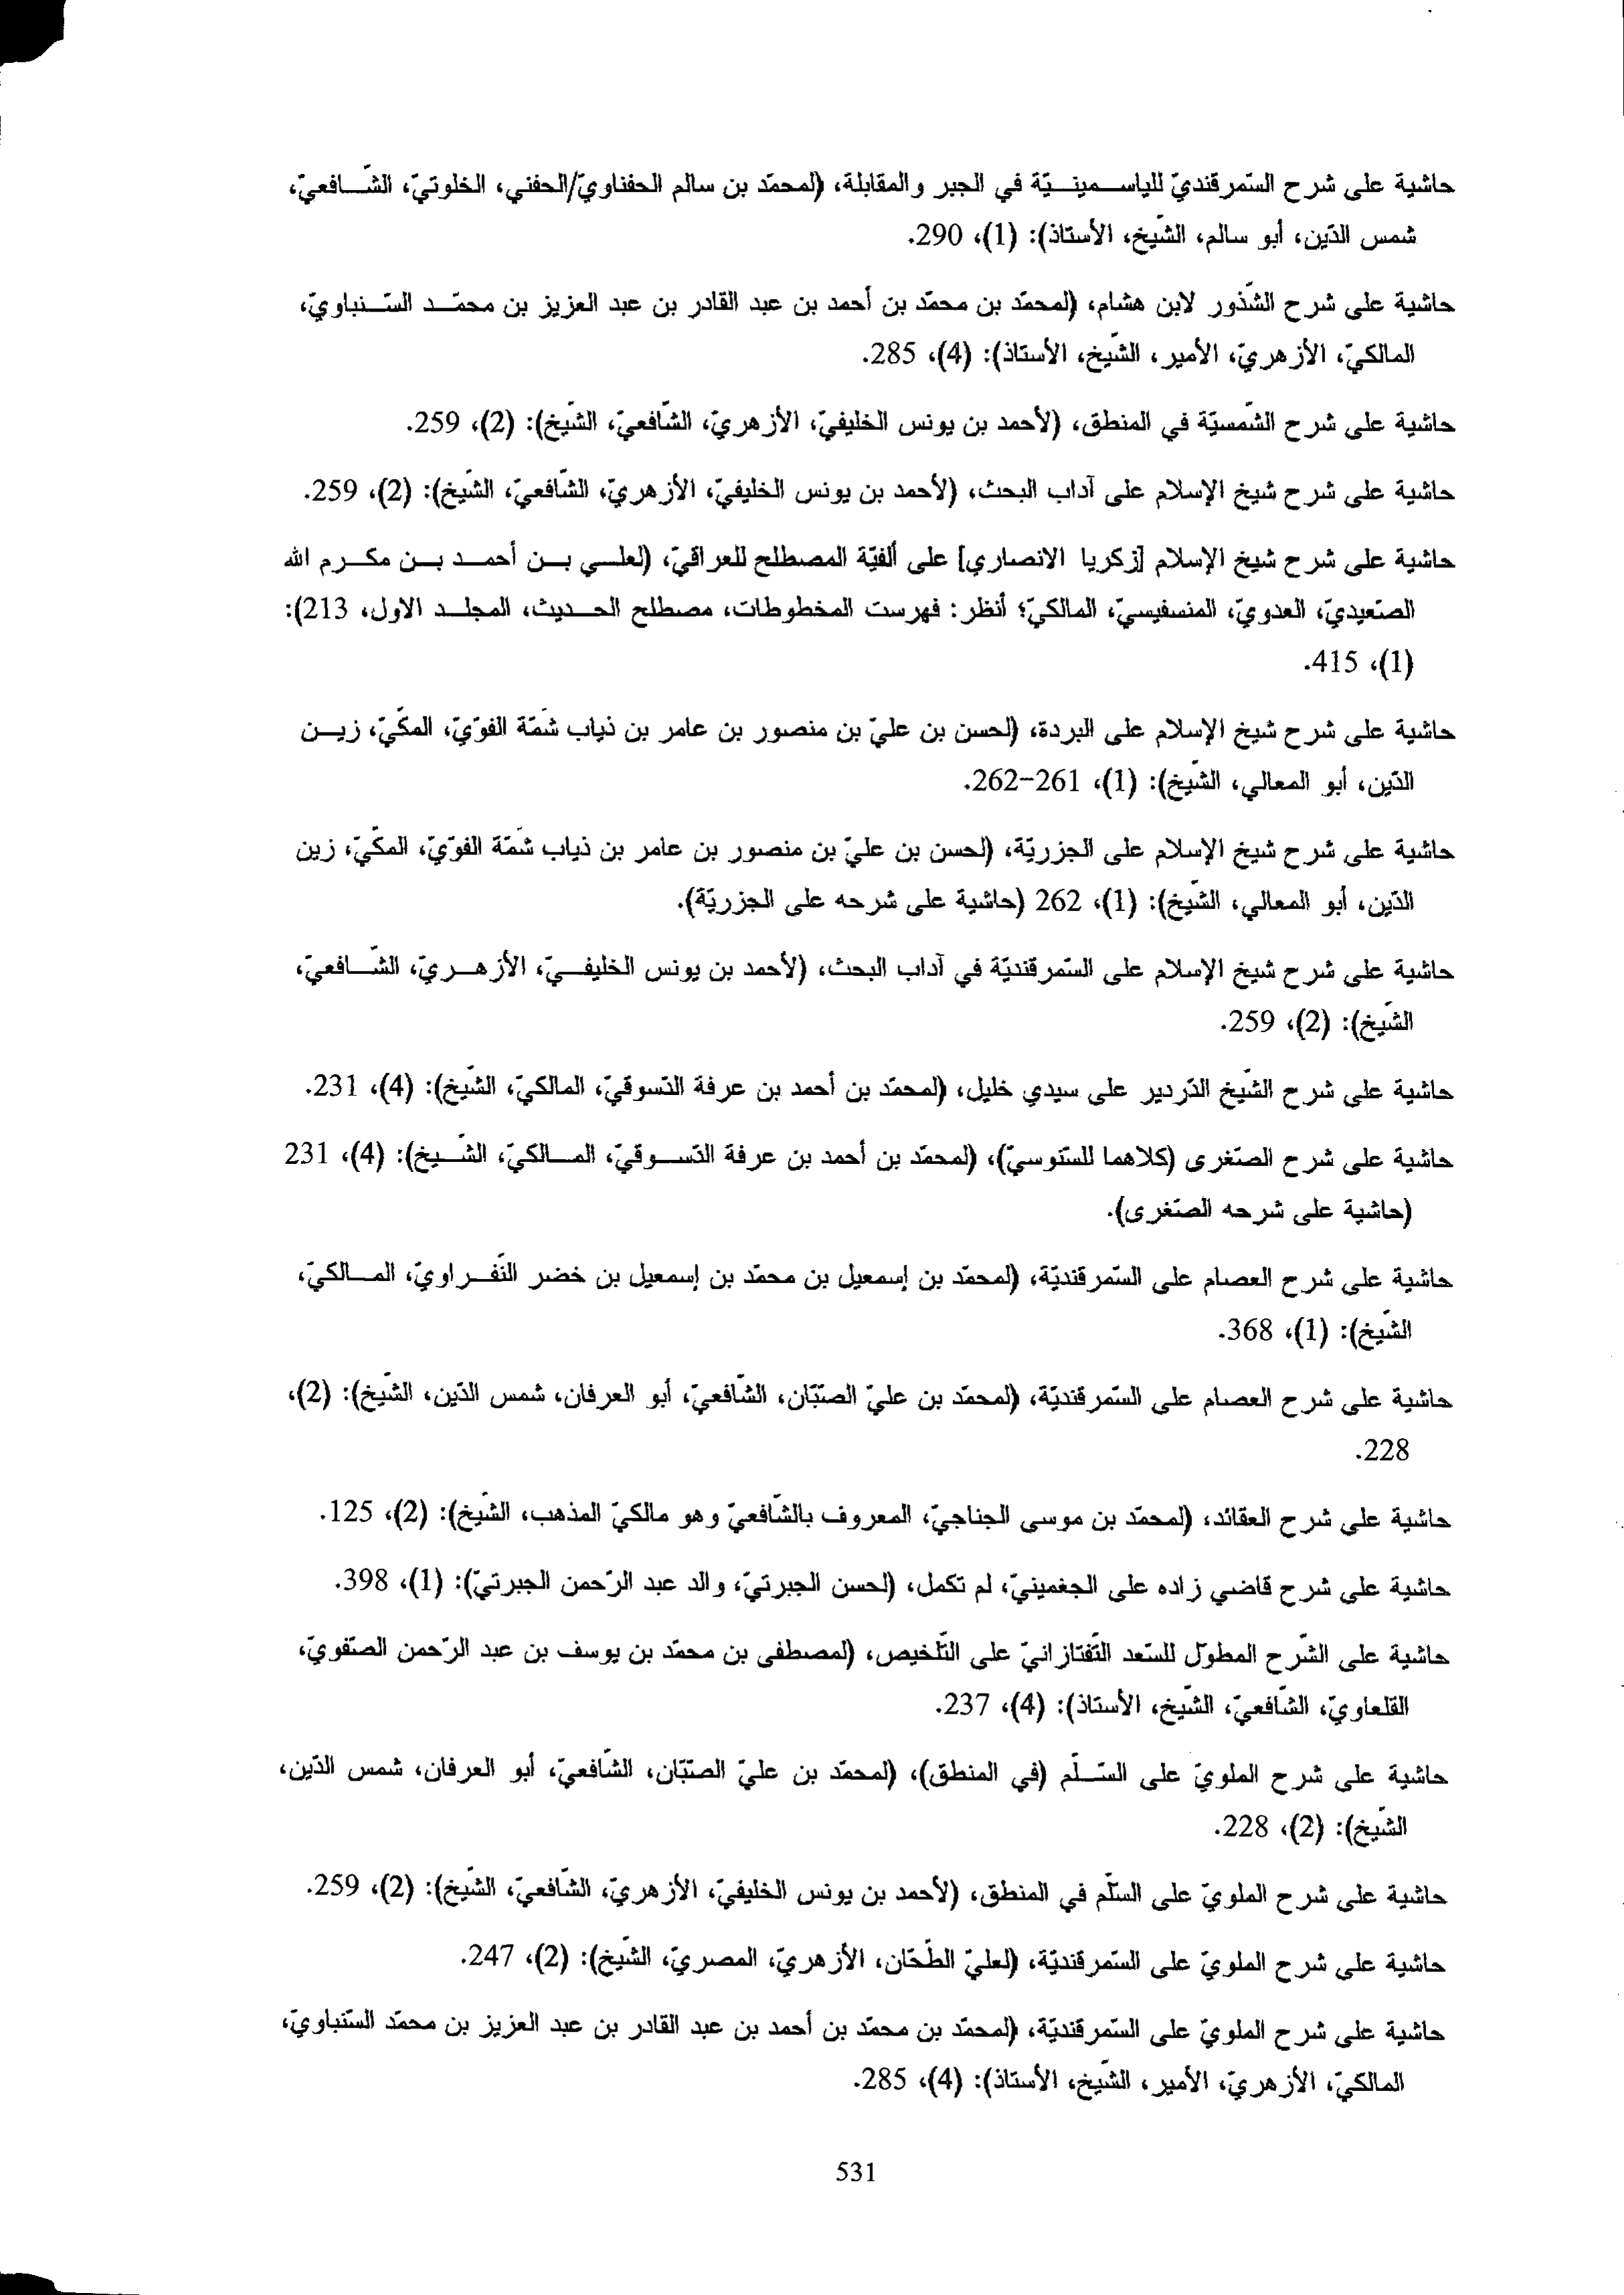 حاشية على شرح السّمرقنديّ للياسمينيّة في الجبر والمقابلة، (لمحمّد بن سالم الحفناويّ/الحفني، الخلوتيّ، الشّافعيّ،
شمس الدّين، أبو سالم، الشّيخ، الأستاذ): (1)، 290.
حاشية على شرح الشّذور لابن هشام، (لمحمّد بن محمّد بن أحمد بن عبد القادر بن عبد العزيز بن محمّد السّنباويّ،
المالكيّ، الأزهريّ، الأمير، الشّيخ، الأستاذ): (4)، 285.
حاشية على شرح الشّمسيّة في المنطق، (لأحمد بن يونس الخليفيّ، الأزهريّ، الشّافعيّ، الشّيخ): (2)، 259.
حاشية على شرح شيخ الإسلام على آداب البحث، (لأحمد بن يونس الخليفيّ، الأزهريّ، الشّافعيّ، الشّيخ): (2)، 259.
حاشية على شرح شيخ الإسلام [زكريا الانصاري] على ألفيّة المصطلح للعراقيّ، (لعلي بن أحمد بن مكرم الله
الصّعيديّ، العدويّ، المنسفيسيّ، المالكيّ؛ أنظر: فهرست المخطوطات، مصطلح الحديث، المجلد الاول، 213):
(1)، 415.
حاشية على شرح شيخ الإسلام على البردة، (لحسن بن عليّ بن منصور بن عامر بن ذياب شمّة الفوّيّ، المكّيّ، زين
الدّين، أبو المعالي، الشّيخ): (1)، 261-262.
حاشية على شرح شيخ الإسلام على الجزريّة، (لحسن بن عليّ بن منصور بن عامر بن ذياب شمّة الفوّيّ، المكّيّ، زين
الدّين، أبو المعالي، الشّيخ): (1)، 262 (حاشية على شرحه على الجزريّة).
حاشية على شرح شيخ الإسلام على السّمرقنديّة في آداب البحث، (لأحمد بن يونس الخليفيّ، الأزهريّ، الشّافعيّ،
الشّيخ): (2)، 259.
حاشية على شرح الشّيخ الدّردير على سيدي خليل، (لمحمّد بن أحمد بن عرفة الدّسوقيّ، المالكيّ، الشّيخ): (4)، 231.
حاشية على شرح الصّغرى (كلاهما للسّنوسيّ)، (لمحمّد بن أحمد بن عرفة الدّسوقيّ، المالكيّ، الشّيخ): (4)، 231
(حاشية على شرحه الصّغرى).
حاشية على شرح العصام على السّمرقنديّة، (لمحمّد بن إسمعيل بن محمّد بن إسمعيل بن خضر النّفراويّ، المالكيّ،
الشّيخ): (1)، 368.
حاشية على شرح العصام على السّمرقنديّة، (لمحمّد بن عليّ الصّبّان، الشّافعيّ، أبو العرفان، شمس الدّين، الشّيخ): (2)،
228.
حاشية على شرح العقائد، (لمحمّد بن موسى الجناجيّ، المعروف بالشّافعيّ وهو مالكيّ المذهب، الشّيخ): (2)، 125.
حاشية على شرح قاضي زاده على الجغمينيّ، لم تكمل، (لحسن الجبرتيّ، والد عبد الرّحمن الجبرتيّ): (1)، 398.
حاشية على الشّرح المطوّل للسّعد التّفتازانيّ على التّلخيص، (لمصطفى بن محمّد بن يوسف بن عبد الرّحمن الصّفويّ،
القلعاويّ، الشّافعيّ، الشّيخ، الأستاذ): (4)، 237.
حاشية على شرح الملويّ على السّلّم (في المنطق)، (لمحمّد بن عليّ الصّبّان، الشّافعيّ، أبو العرفان، شمس الدّين،
الشّيخ): (2)، 228.
حاشية على شرح الملويّ على السلّم في المنطق، (لأحمد بن يونس الخليفيّ، الأزهريّ، الشّافعيّ، الشّيخ): (2)، 259.
حاشية على شرح الملويّ على السّمرقنديّة، (لعليّ الطّحّان، الأزهريّ، المصريّ، الشّيخ): (2)، 247.
حاشية على شرح الملويّ على السّمرقنديّة، (لمحمّد بن محمّد بن أحمد بن عبد القادر بن عبد العزيز بن محمّد السّنباويّ،
المالكيّ، الأزهريّ، الأمير، الشّيخ، الأستاذ): (4)، 285.
531